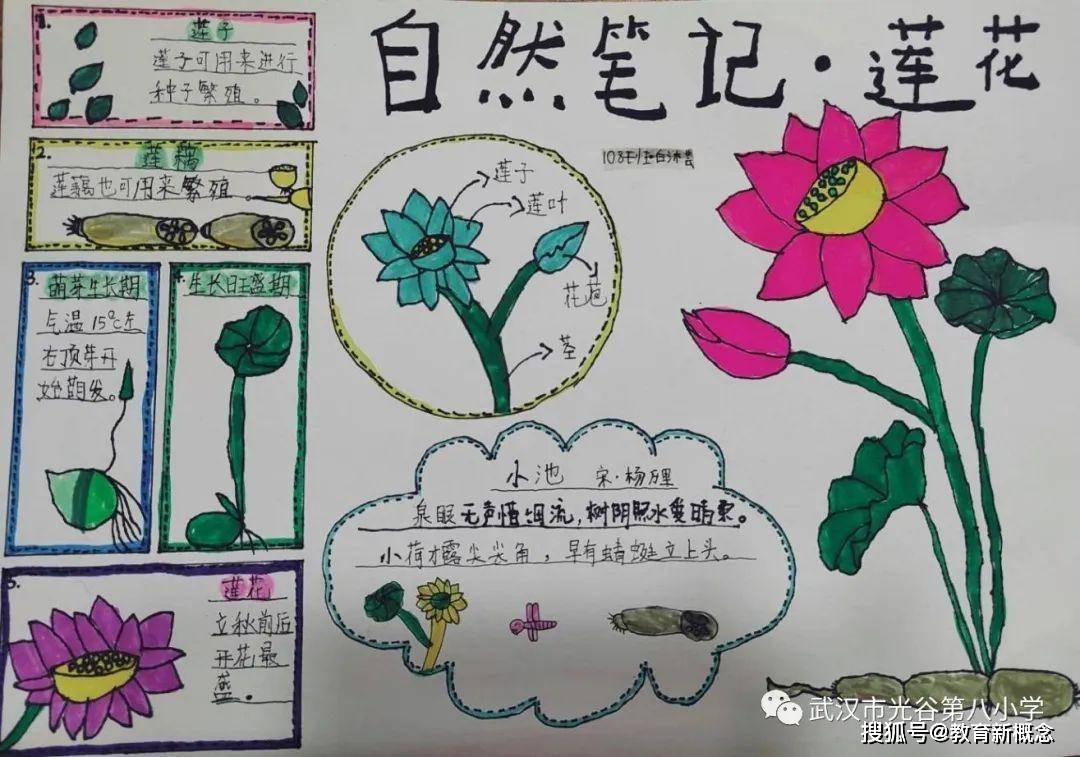 自然笔记·莲花
1.
莲子
莲子可用来进行
种子繁殖。
2.
莲藕
莲藕也可用来繁殖。
3.
萌芽生长期
气温15℃左
右顶芽开
始萌发。
4.
生长旺盛期
5.
莲花
立秋前后
开花最
盛。
莲子
莲叶
花苞
茎
小池 宋·杨万里
泉眼无声惜细流,树阴照水爱晴柔。
小荷才露尖尖角,早有蜻蜓立上头。
武汉市光谷第八小学
搜狐号@教育新概念